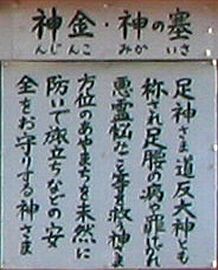 塞の神・金神
さい かみ こんじん
足神さま道反大神とも
称され足腰の病の罪けがれ
悪霊悩みごと等を救う神さま
方位のあやまちを未然に
防いで旅立ちなどの安
全をお守りする神さま